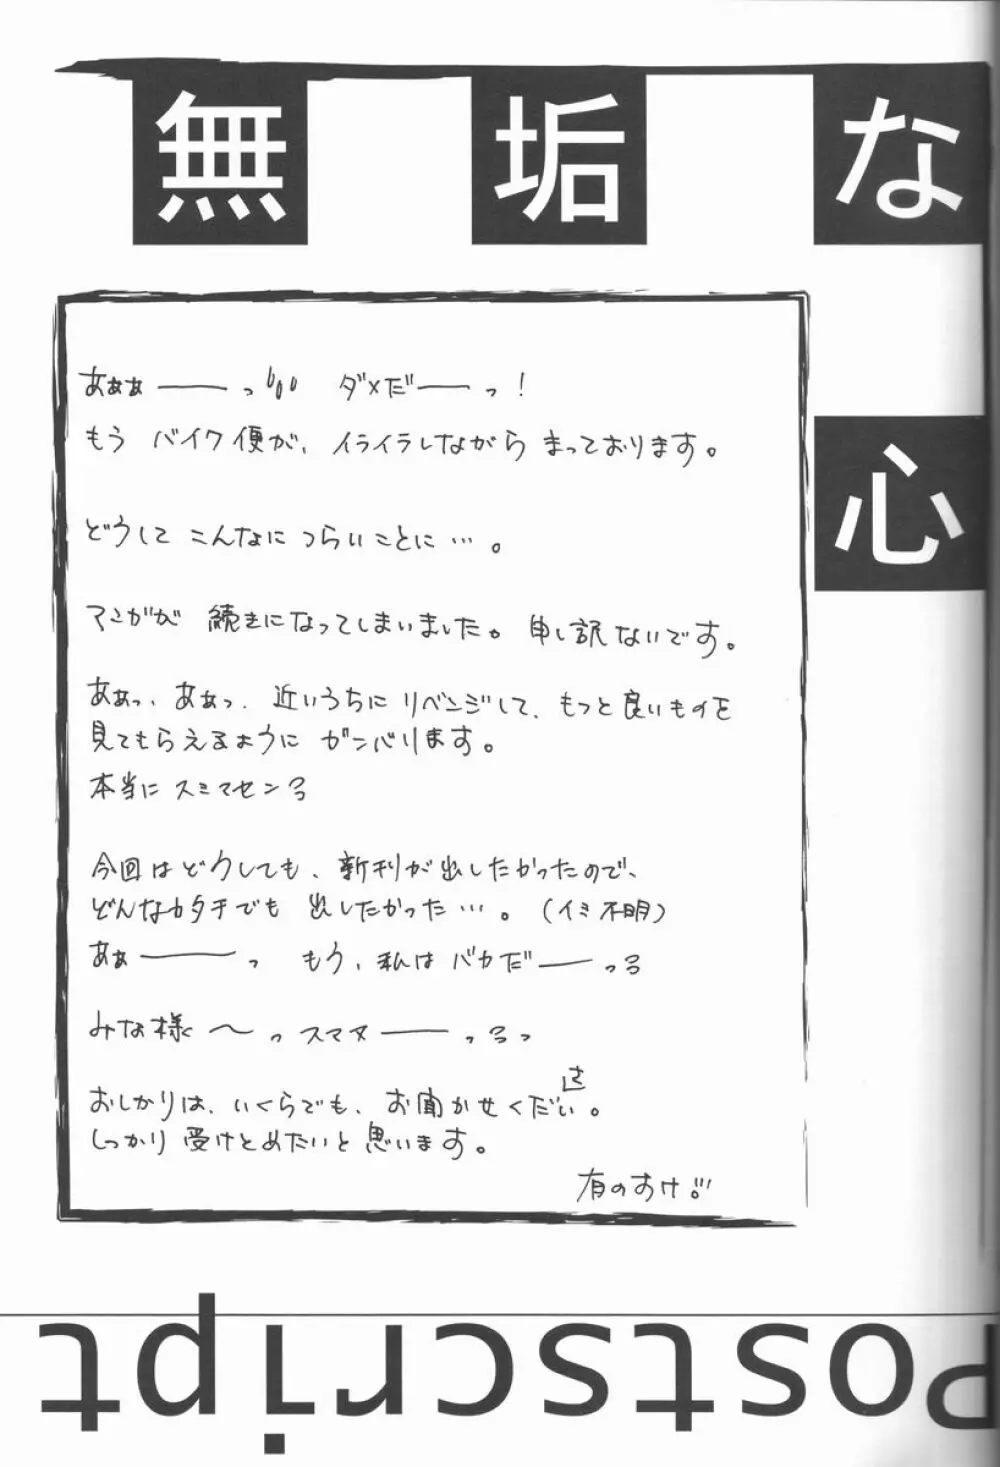 無垢な
心
あぁぁ――っ ダメだ――っ!
もう バイク便が、イライラしながら まっております。
どうして こんなに つらいことに…。
マンガが 続きになってしまいました。申し訳ないです。
ああっ、ああっ、近いうちに リベンジして、もっと良いものを
見てもらえるように ガンバります。
本当に スミマセン
今回はどうしても、新刊が出したかったので、
どんなカタチでも 出したかった…。(イミ不明)
あぁ――っ もう、私は バカだ――っ
みな様 〜っ スマヌ――っ
おしかりは、いくらでも、お聞かせください。
しっかり 受けとめたいと 思います。
有のすけ。
Postscript